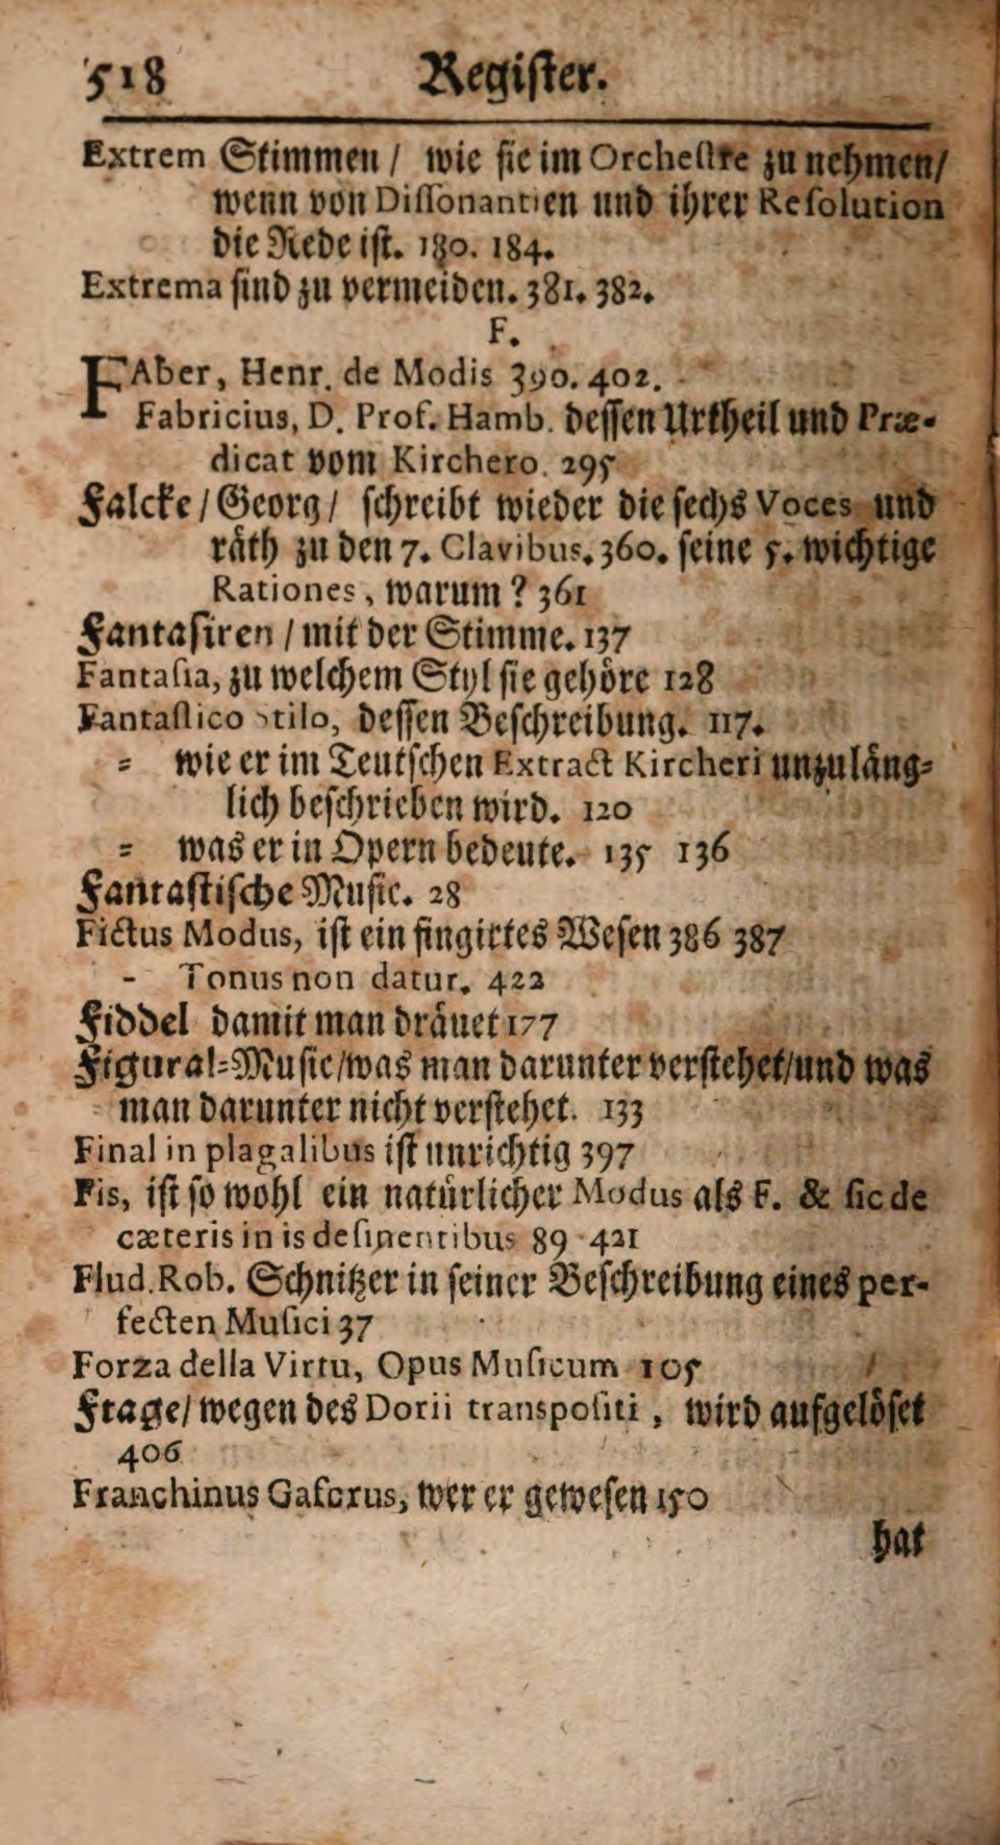 518 Register.
Extrem Stimmen / wie sie im Orchestre zu nehmen/
wenn von Dissonantien und ihrer Resolution
die Rede ist. 180. 184.
Extrema sind zu vermeiden. 381. 382.
F.
FAber, Henr. de Modis 390. 402.
Fabricius, D. Prof. Hamb. dessen Urtheil und Præ-
dicat vom Kirchero. 295
Falcke / Georg / schreibt wieder die sechs Voces und
räth zu den 7. Clavibus. 360. seine 5. wichtige
Rationes, warum? 361
Fantasiren / mit der Stimme. 137
Fantasia, zu welchem Styl sie gehöre 128
Fantastico Stilo, dessen Beschreibung. 117.
= wie er im Teutschen Extract Kircheri unzuläng=
lich beschrieben wird. 120
= was er in Opern bedeute. 135 136
Fantastische Music. 28
Fictus Modus, ist ein fingirtes Wesen 386 387
- Tonus non datur. 422
Fiddel damit man dräuet 177
Figural=Music/was man darunter verstehet/und was
man darunter nicht verstehet. 133
Final in plagalibus ist unrichtig 397
Fis, ist so wohl ein natürlicher Modus als F. & sic de
cæteris in is desinentibus 89 421
Flud. Rob. Schnitzer in seiner Beschreibung eines per-
fecten Musici 37
Forza della Virtu, Opus Musicum 105
Frage/ wegen des Dorii transpositi, wird aufgelöset
406
Franchinus Gaforus, wer er gewesen 150
hat